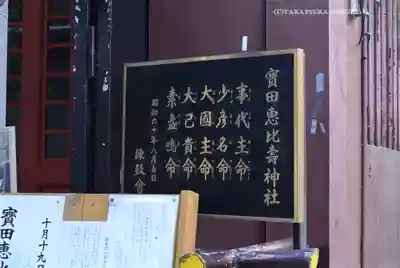 (C)TAKATSUKA
寶田恵比壽神社
事代主命
少彦名命
大國主命
大己貴命
素盞鳴命
昭和六十年
諌鼓會
十月十九日
寶田恵比